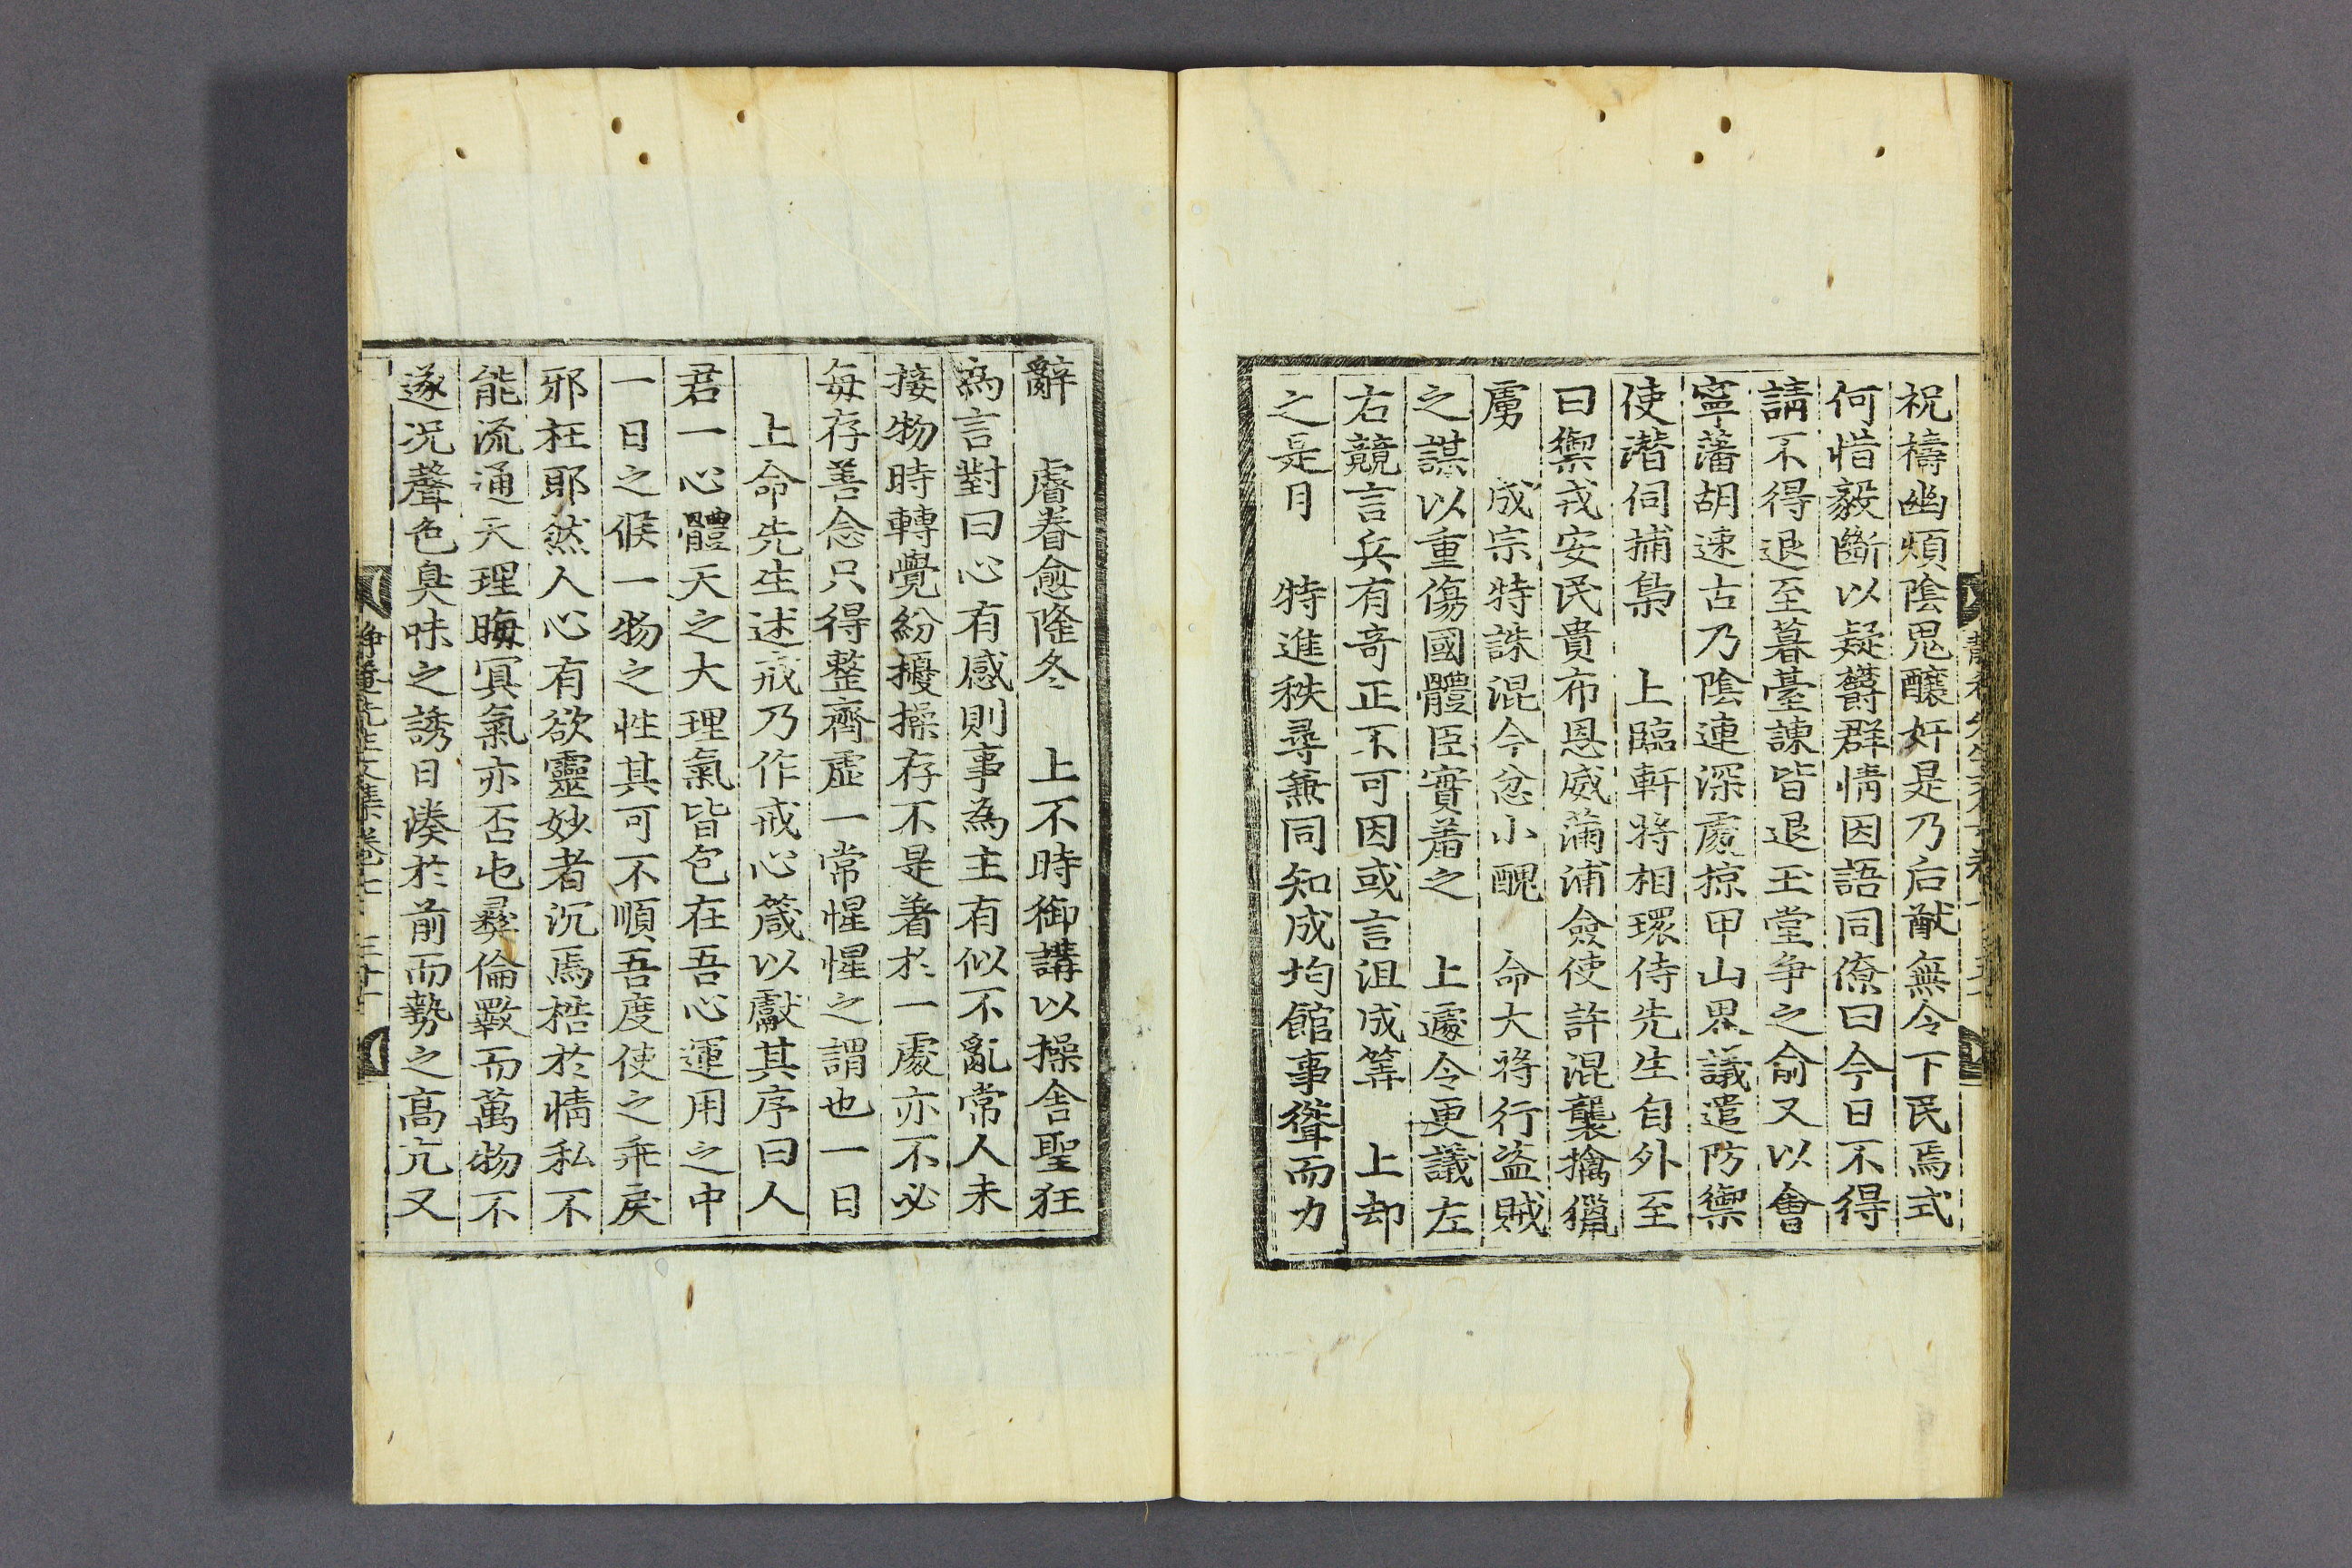 祝禱幽煩陰鬼釀奸是乃后猷無令下民焉式
何惜毅斷以疑欝群情因語同僚曰今日不得
請不得退至暮臺諫皆退玉堂争之俞又以會
寧藩胡速古乃陰連深處掠甲山界議遣防禦
使潜伺捕梟 上臨軒將相環侍先生自外至
曰禦戎安民貴布恩威蒲浦僉使許混襲擒獵
虜 成宗特誅混今忿小醜 命大將行盗賊
之謀以重傷國體臣實羞之 上遽令更議左
右競言兵有奇正不可因或言沮成筭 上却
之是月 特進秩尋兼同知成均館事聳而力
辭 睿眷愈隆冬 上不時御講以操舍聖狂
為言對曰心有感則事為主有似不亂常人未
接物時轉覺紛擾操存不是着於一處亦不必
每存善念只得整齊虛一常惺惺之謂也一日
上命先生述戒乃作戒心箴以獻其序曰人
君一心體天之大理氣皆包在吾心運用之中
一日之候一物之性其可不順吾度使之乖戾
邪枉耶然人心有欲靈妙者沉焉梏於情私不
能流通天理晦冥氣亦否屯彛倫斁而萬物不
遂况聲色臭味之誘日湊於前而勢之高亢又
静菴先生文集卷七 三十一